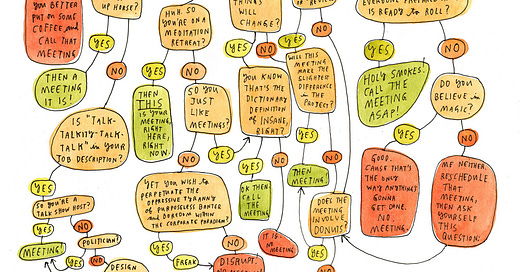 YOU BETTER
PUT ON SOME
COFFEE and
CALL THAT
MEETING
UP HOUSE?
HUH SO
YOU'RE ON A
MEDITATION
RETREAT?
THINGS
WILL
CHANGE?
EVERYONE PREPARED AND
IS READY to ROLL?
YES
NO
YES
NO
YES
NO
YES
NO
THEN A
MEETING
IT IS!
THEN
THIS
is YOUR
MEETING,
RIGHT
HERE,
RIGHT
NOW.
SO YOU
JUST
LIKE
MEETINGS?
YOU KNOW
THAT'S THE
DICTIONARY
DEFINITION
OF INSANE,
RIGHT?
WILL THIS
MEETING
MAKE the
SLIGHTEST
DIFFERENCE
in the
PROJECT?
HOLY SMOKES.
CALL THE
MEETING
ASAP!
DO YOU
BELIEVE in
MAGIC?
IS "TALK-
TALKITY-TALK-
TALK" in YOUR
JOB DESCRIPTION?
YES
NO
NO
YES
NO
YES
NO
YES
NO
YES
NO
SO YOU'RE A
TALK SHOW HOST?
YET YOU WISH to
PERPETUATE THE
OPPRESSIVE TYRANNY
OF PURPOSELESS BANTER
and BOREDOM WITHIN
THE CORPORATE PARADIGM?
OK THEN
CALL
THE
MEETING
THEN MEETING!
DOES THE
MEETING
INVOLVE
DONUTS?
GOOD.
CAUSE THAT'S
THE ONLY
WAY ANYTHING'S
GONNA
GET DONE.
NO
MEETING.
ME NEITHER.
RESCHEDULE
THAT
MEETING,
THEN ASK
YOURSELF
THIS
QUESTION:
YES
NO
MEETING!
POLITICIAN?
YES
NO
DESIGN
YES
FREAK
NO
DISRUPT!
IT IS
NO MEETING